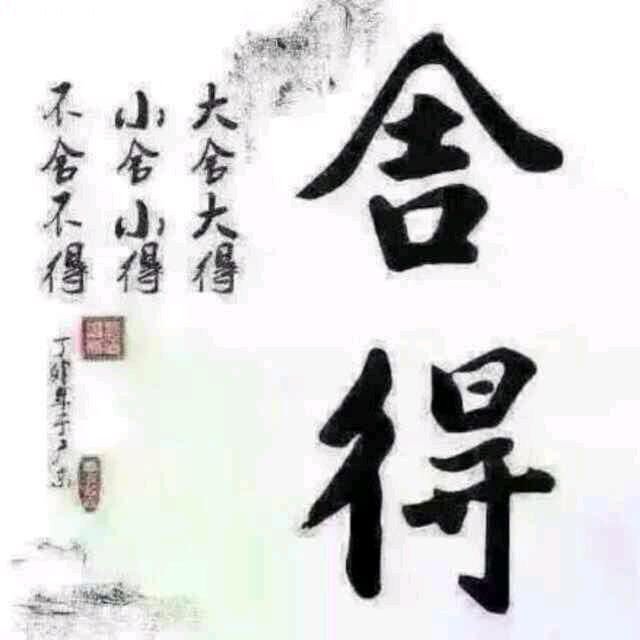 舍得
大舍大得
小舍小得
不舍不得
丁卯年于